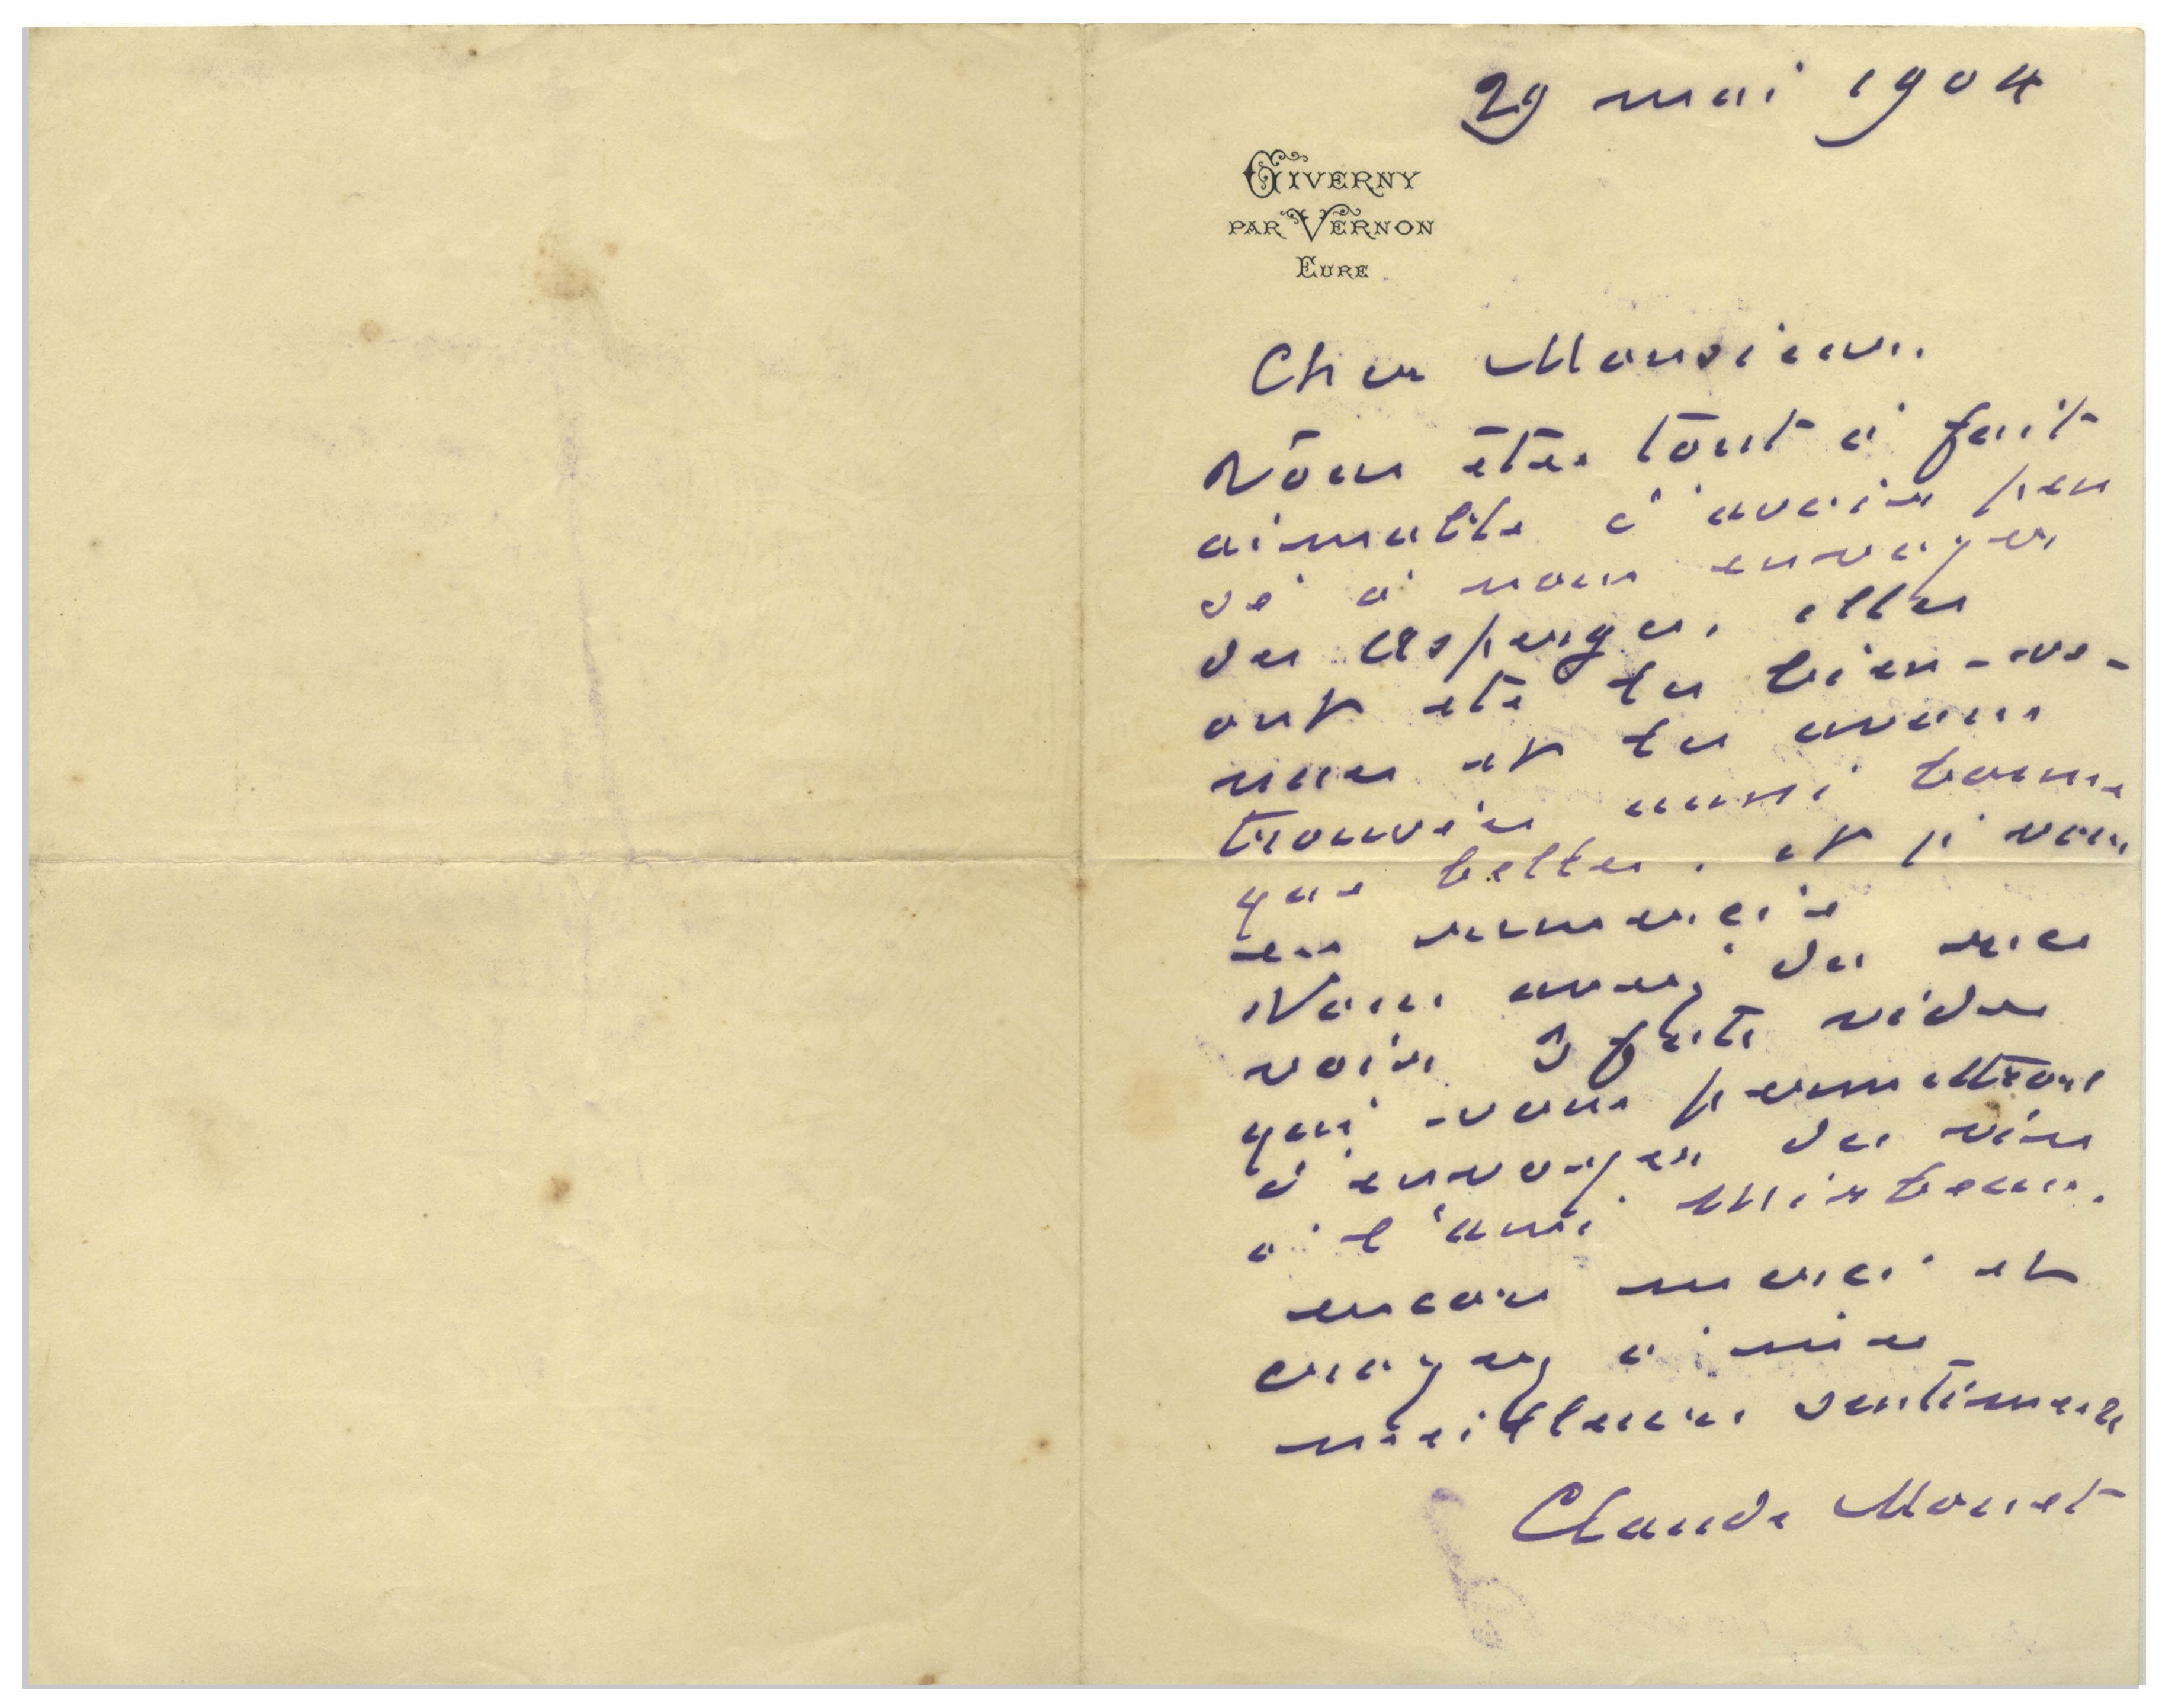 29 mai 1904
GIVERNY
PAR VERNON
EURE
Cher Monsieur.
Vous êtes tout à fait
aimable d'avoir pen
sé à nous envoyer
des asperges. elles
ont été les bien-ve-
nues et les avons
trouvées aussi bonnes
que belles. et je vous
en remercie
Vous avez du rece
voir 3 futs vides
qui vous permettront
d'envoyer du vin
à l'ami Mirbeau.
encore merci et
croyez à mes
meilleurs sentiments
Claude Monet